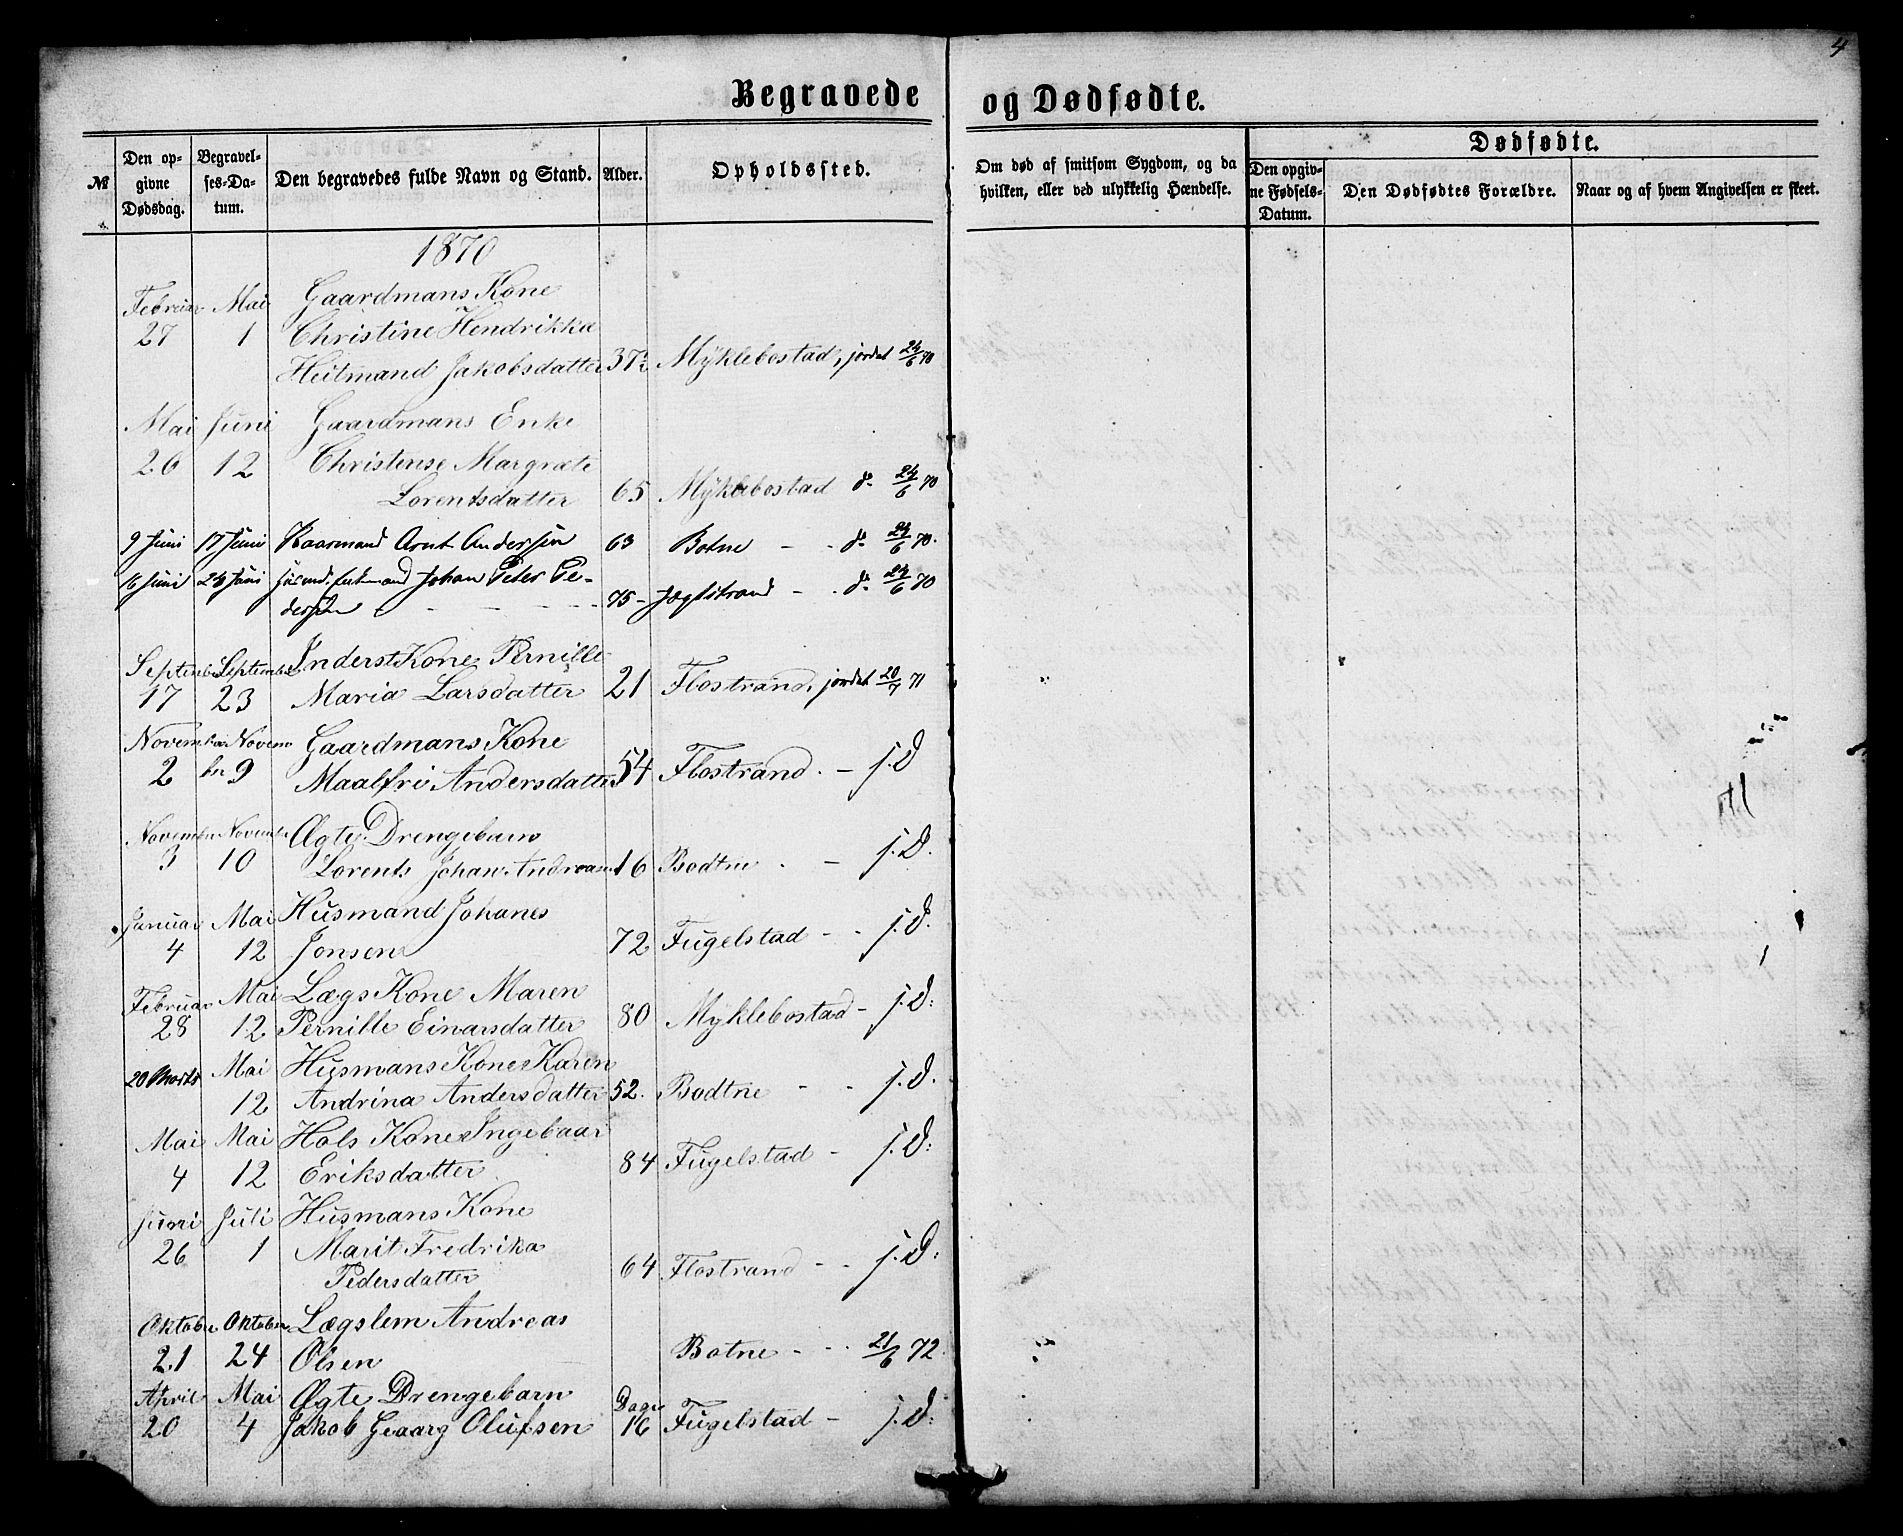 4
Begravede og Dødfødte.
№
Den opgivne Dødsdag.
Begravelses-Datum.
Den begravedes fulde Navn og Stand.
Alder.
Opholdssted.
Om død af smitsom Sygdom, og da hvilken, eller ved ulykkelig Hændelse.
Dødfødte.
Den opgivne Fødsels-Datum.
Den Dødfødtes Forældre.
Naar og af hvem Angivelsen er skeet.
1870
Februar Mai Gaardmans Kone
27 1 Christine Hendrikka
Heitmand Jakobsdatter 37 Myklebostad, jordet 24/6 70
Mai Juni Gaardmans Enke
26 12 Christense Margræte
Lorentsdatter 65 Myklebostad do 24/6 70
9 Juni 17 Juni Kaarmand Arnt Andersen 63 Botne - - do 24/6 70.
16 Juni 24 Juni Johan Peter Pe-
dersen - - - 75 - Jægtstrand - - do 24/6 70
September September Inderst Kone Pernille
17 23 Maria Larsdatter 21 Flostrand, jordet 20/7 71
November Novem Gaardmans Kone
2 ber 9 Maalfri Andersdatter 54 Flostrand. - j. D
November November Ægte Drengebarn
3 10 Lorents Johan Andreasen 16 Bodtne - - j. D.
Januar Mai Husmand Johanes
4 12 Jonsen 72 Fugelstad - - j. D.
Februar Mai Lægs Kone Maren
28 12 Pernille Einarsdatter 80 Myklebostad - j. D:
20 Marts Mai Husmans Kone Karen
12 Andrina Andersdatter 52. Bodtne - - j. D.
Mai Mai Hols Kone Ingebaar
4 12 Eriksdatter 84 Fugelstad - j. D:
Juni Juli Husmans Kone
26 1 Marit Fredrika
Pedersdatter 64 Flostrand - - j. D:
Oktober Oktober Lægslem Andreas
21 24 Olsen Botne - - - 21/6 72.
April Mai Ægte Drengebarn Dage
20 4 Jakob Geaarg Olufsen 16 Fugelstad - j. D: